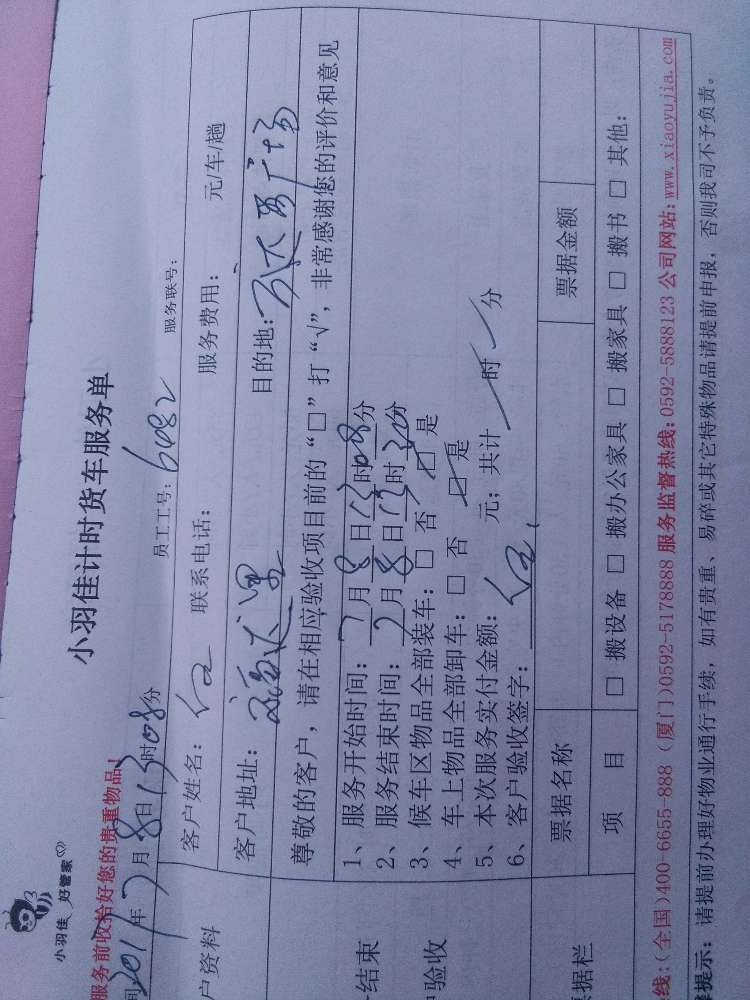 小羽佳 好管家
小羽佳计时货车服务单
服务前收拾好您的贵重物品!
间2017年7月8日13时08分 员工工号: 6082 服务联号:
户资料
客户姓名: 联系电话: 服务费用: 元/车/趟
客户地址: 目的地: 万达广场
尊敬的客户，请在相应验收项目前的“□”打“√”，非常感谢您的评价和意见
结束
验收
1、服务开始时间: 7月8日13时08分
2、服务结束时间: 7月8日13时30分
3、候车区物品全部装车: □ 否 □ 是
4、车上物品全部卸车: □ 否 □ 是
5、本次服务实付金额: 元; 共计 时 分
6、客户验收签字:
据栏
票据名称 票据金额
项 目 □ 搬设备 □ 搬办公家具 □ 搬家具 □ 搬书 □ 其他:
线:(全国)400-6655-888 (厦门)0592-5178888 服务监督热线: 0592-5888123 公司网站: www.xiaoyujia.com
提示: 请提前办理好物业通行手续，如有贵重、易碎或其它特殊物品请提前申报，否则我司不予负责。